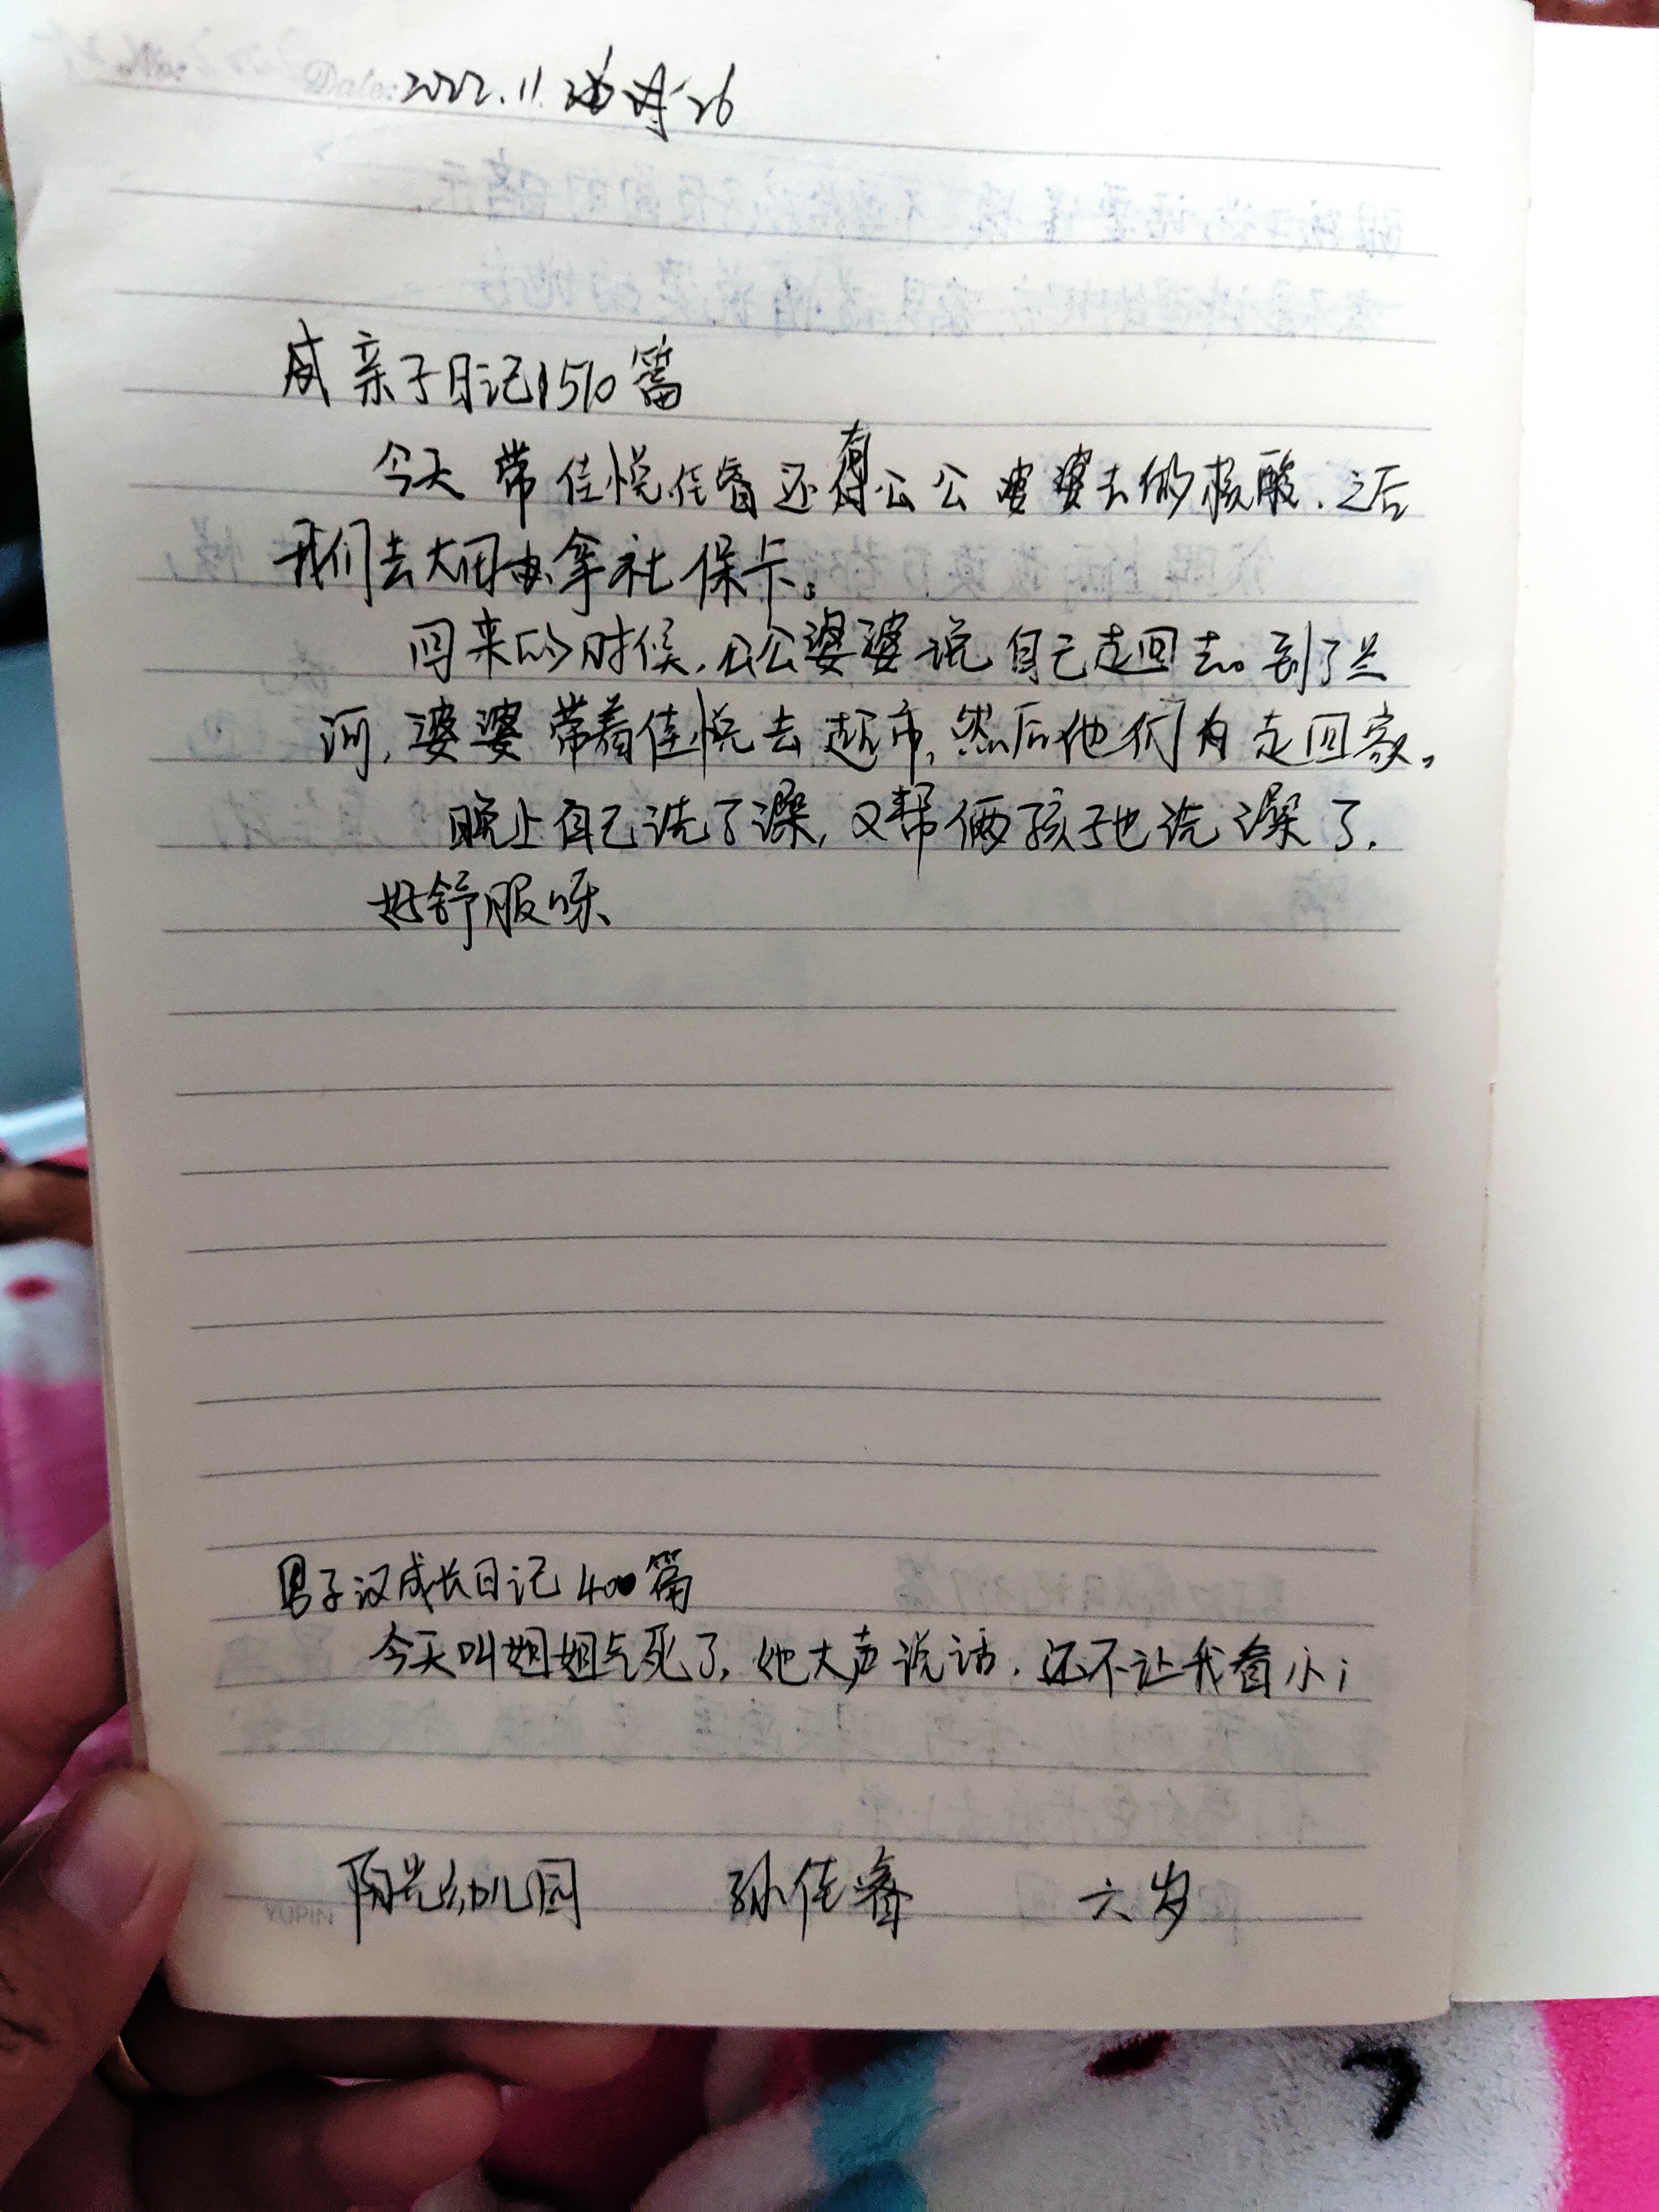 Date: 2022.11.26
威亲子日记1510篇
今天带佳悦佳睿还有公公婆婆去做核酸.之后
我们去大团办拿社保卡。
回来的时候,公公婆婆说自己走回去。到了兰
河,婆婆带着佳悦去超市,然后他们为走回家。
晚上自己洗了澡,又帮俩孩子也洗澡了.
好舒服呀、
男子汉成长日记400篇
今天叫姐姐气死了,她大声说话.还不让我看小i
阳光幼儿园 孙佳睿 六岁
YUPIN